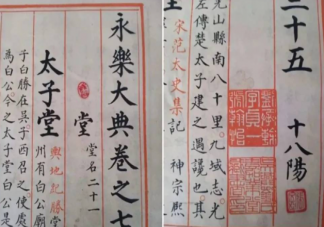 永樂大典卷之七
堂 堂名二十一
太子堂
輿地記勝
州有白公廟
子白勝在吳子西召之使處
為白公今之太子堂白公是
三十五 十八陽
光山縣南八十里九域志光
左傳楚太子建之遇讒也其
宋范太史集記 神宗熙